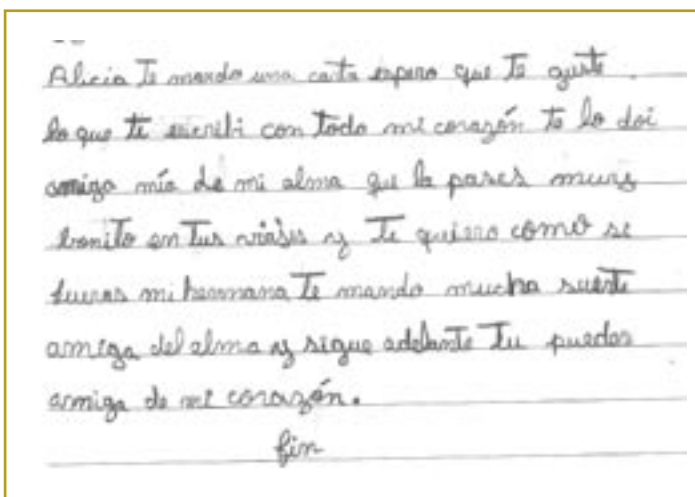 Alicia Te mando una carta espero que Te guste.
lo que te escribi con Todo mi corazón te lo doi
amiga mía de mi alma que la pases muy
bonito en Tus viajes y Te quiero como si
fueras mi hermana Te mando mucha suerte
amiga del alma y sigue adelante Tu puedes
amiga de mi corazón.
fin